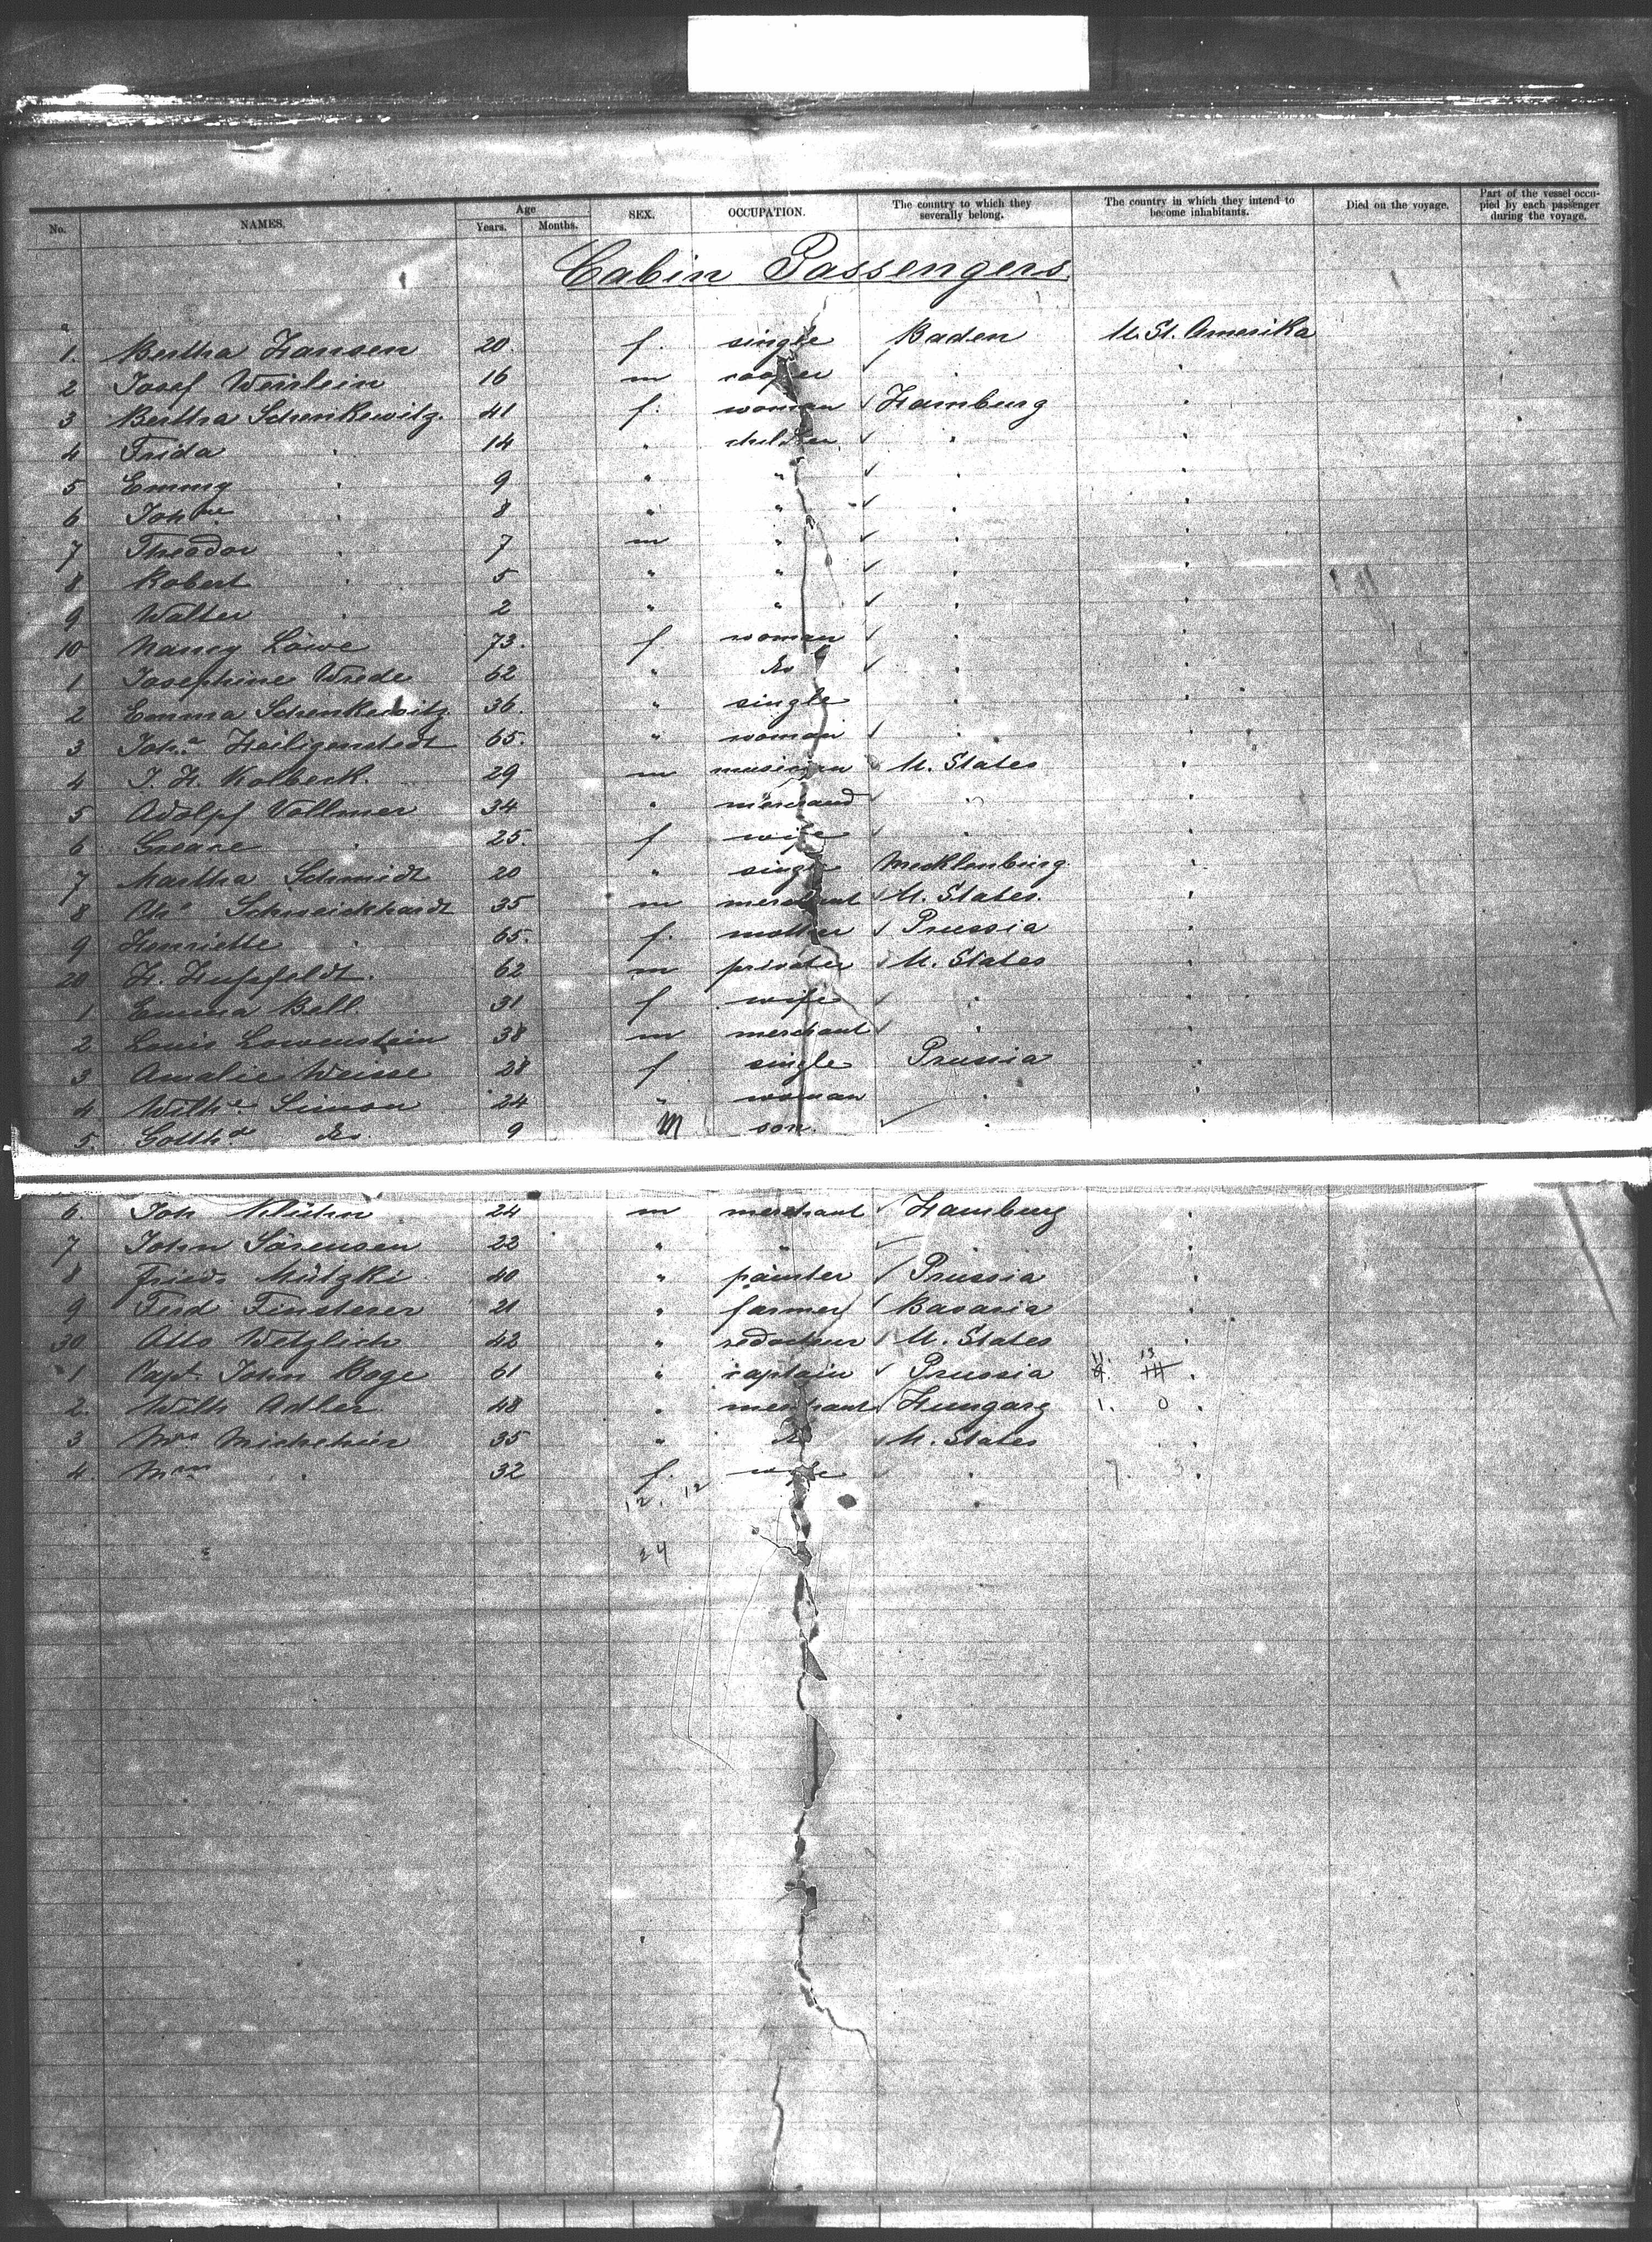 No. NAMES. Age Years. Months. SEX. OCCUPATION. The country to which they severally belong. The country in which they intend to become inhabitants. Died on the voyage. Part of the vessel occupied by each passenger during the voyage.
Cabin Passengers
1. Bertha Hansen 20. f. single Baden U. St. Amerika
2 Josef 16 m "
3 Bertha Schenkewitz. 41 f. woman Hamburg "
4 Frida " 14 " children " "
5 Emmy " 9 " " " "
6 Johne " 8 " " " "
7 Theodor " 7 m " " "
8 Robert " 5 " " " "
9 Walter " 2 " " " "
10 Nancy Löwe 73. f woman " "
1 Josephine Wrede 62 " do " "
2 Emma Schenkewitz 36. " single " "
3 Joha Heiligenstedt 65. " woman " "
4 J. H. Kolbeck. 29 m musician U. States "
5 Adolf Vollmer 34 " merchand " "
6 " 25. f wife " "
7 Martha Schmidt 20 " single Mecklenburg "
8 Chs Schweickhardt 35 m merchant U. States. "
9 Henriette " 65. f. mother Prussia "
20 H. Hupfeldt. 62 m privatier U. States "
1 Emma Bell. 31 f wife " "
2 Louis Lowenstein 38 m merchant " "
3 Amalie Weisse 28 f single Prussia "
4. Wilhe Simon 24 " woman " "
5. Gotthd do 9 M son. " "
6. Joh 24 m merchant Hamburg "
7 John Sörensen 22 " " " "
8 Friedr Mützki 40 " painter Prussia "
9 Ferd Finsterer 21 " farmer Bavaria "
30 Otto Wetzlich 42 " redacteur U. States "
1 Capt. John Boge 61 " captain Prussia 11. 13 "
2. Wilh Adler 48 " merchant Hungary 1. 0 "
3 Mr 35 " do U. States "
4. Mrs " 32 f. wife " 7. 3. "
12. 12
24